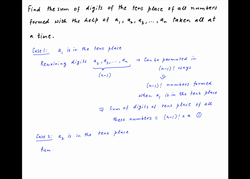 Find the sum of digits of the tens place of all numbers
formed with the help of a₁, a₂, a₃, ..., aₙ taken all at
a time.
Case 1: a₁ is in the tens place
Remaining digits a₂, a₃, ..., aₙ → Can be permuted in
(n-1) (n-1)! ways
⇓
(n-1)! numbers formed
when a₁ is in the tens place
⇒ Sum of digits of tens place of all
these numbers = (n-1)! × a ①
Case 2: a₂ is in the tens place